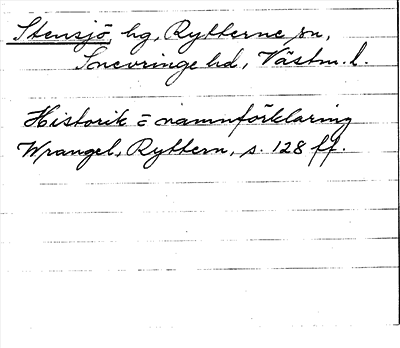 Stensjö, hg, Rytterne sn,
Snevringe hd, Västm. l.
Historik = namnförklaring
Wrangel, Ryttern, s. 128 ff.